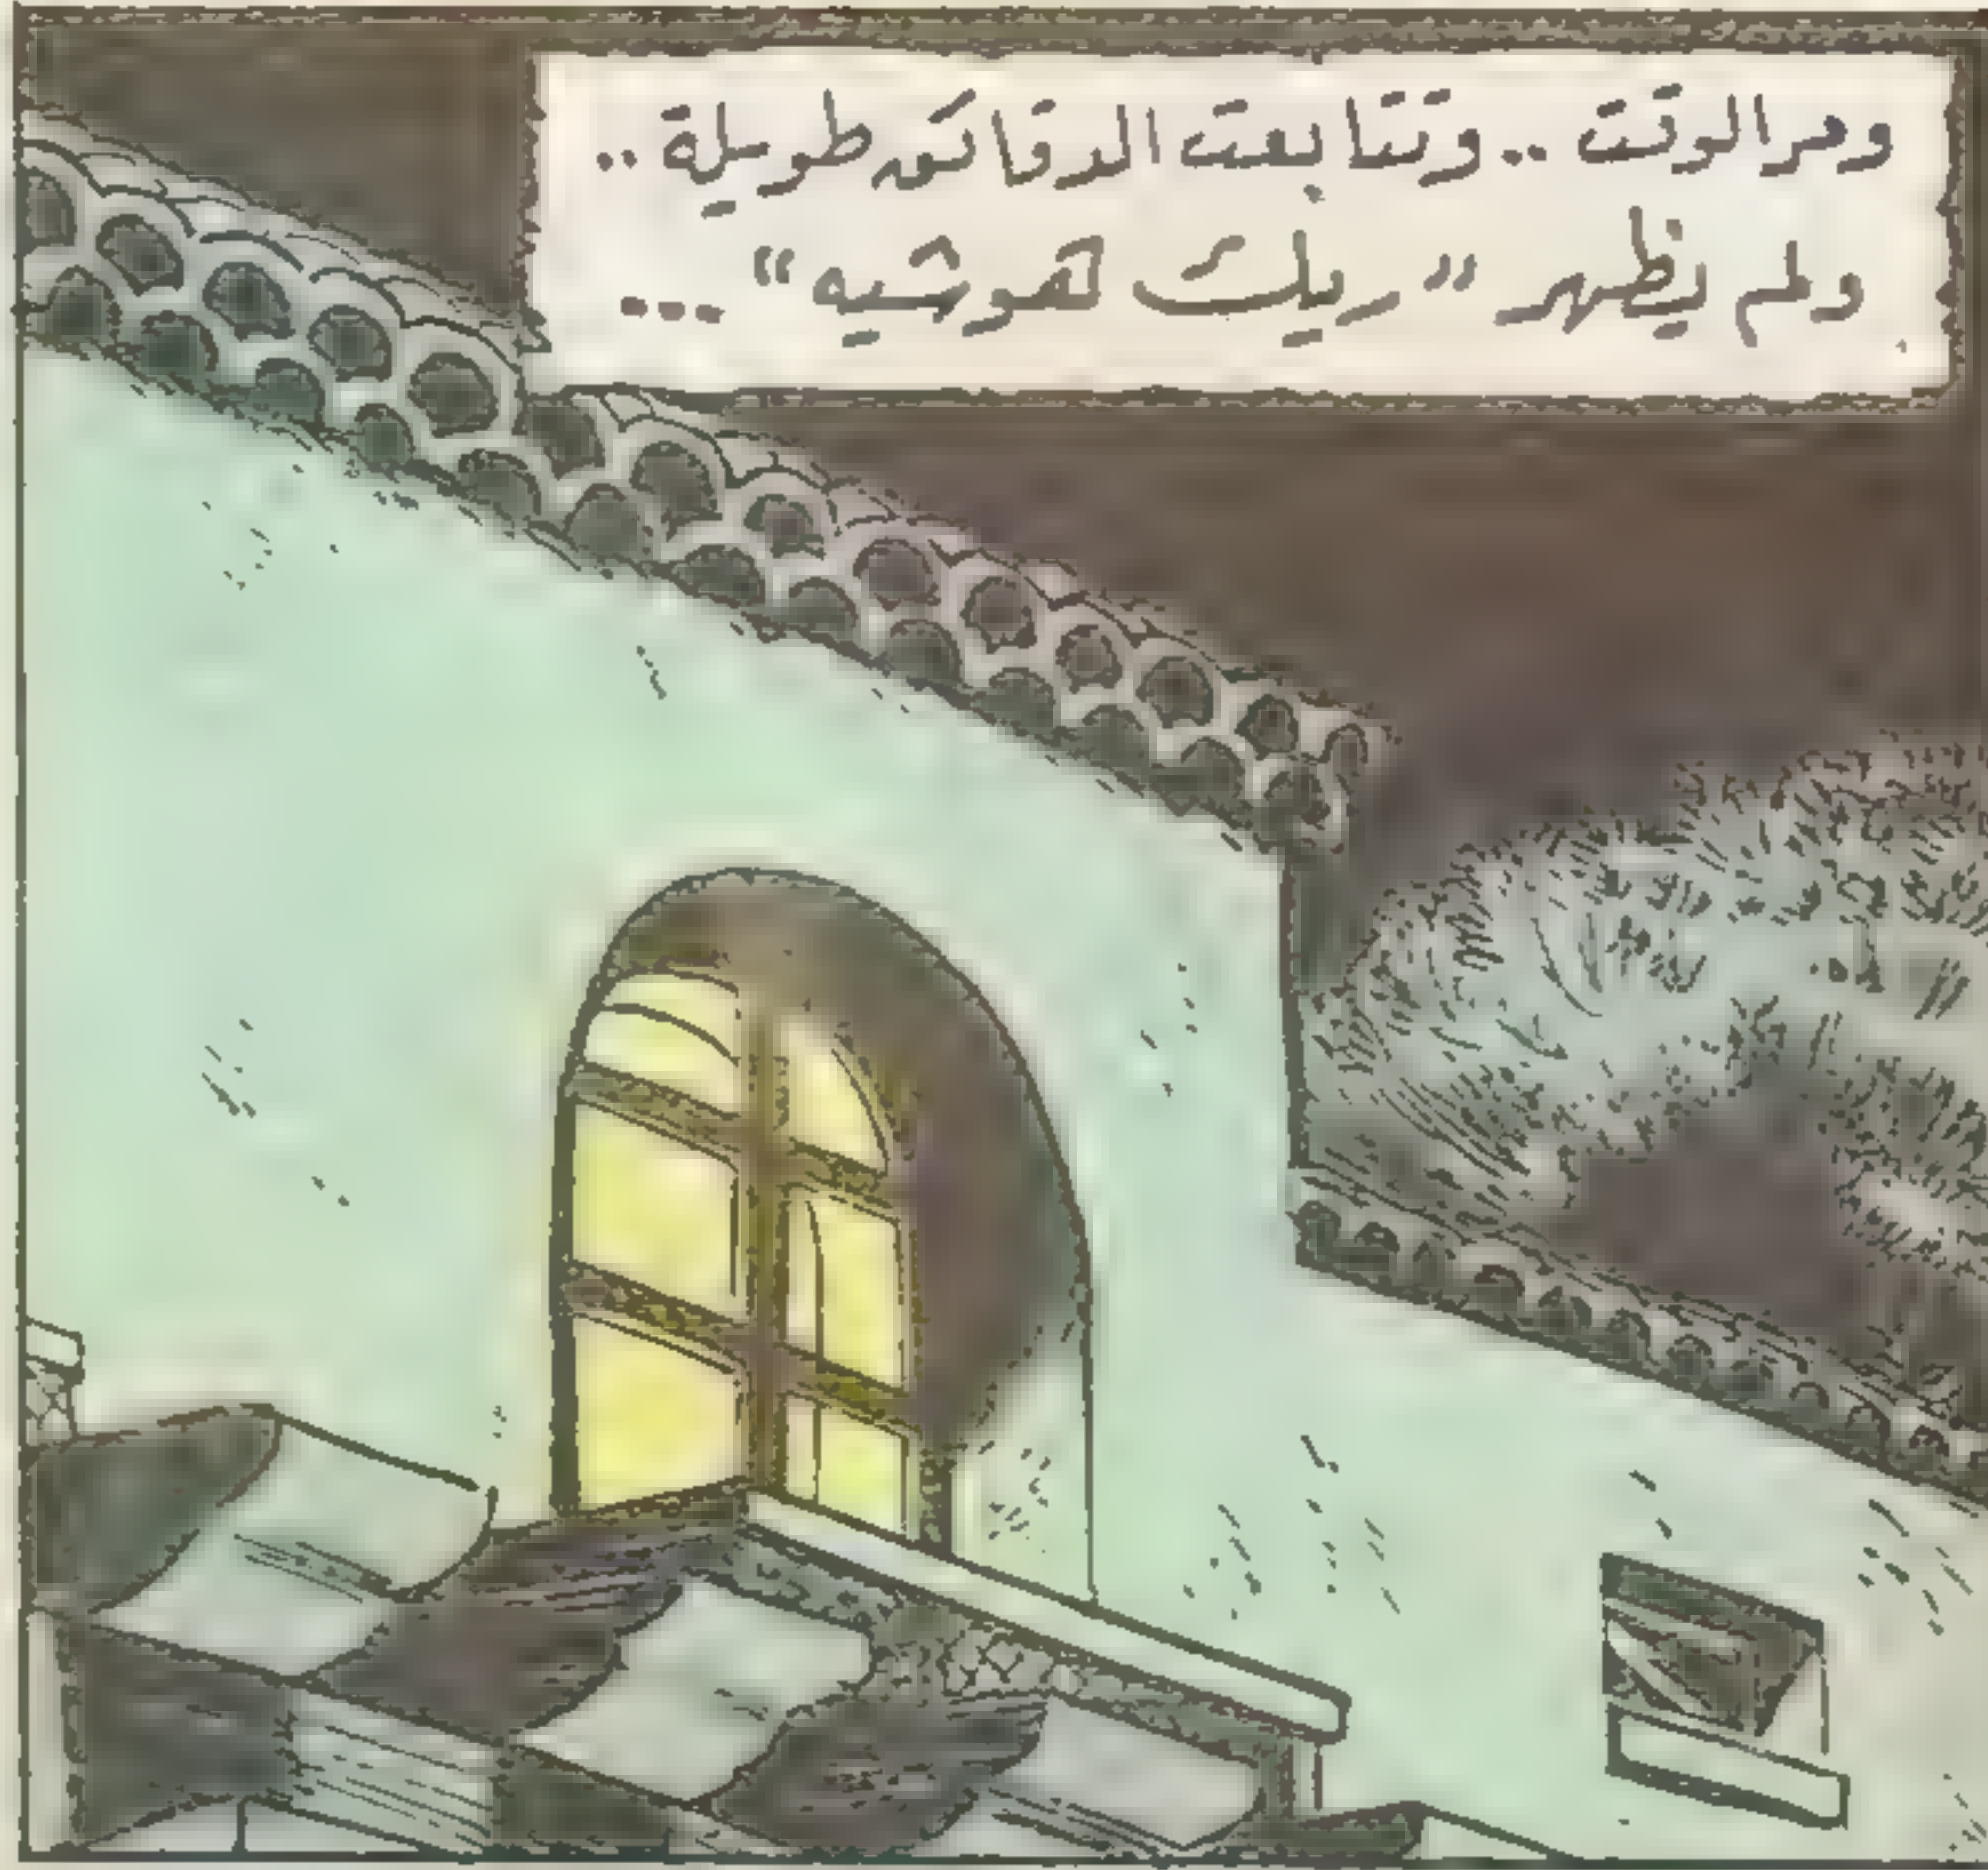 ومر الوقت .. وتتابعت الدقائق طويلة ..
ولم يظهر "ريك هوشيه" ...